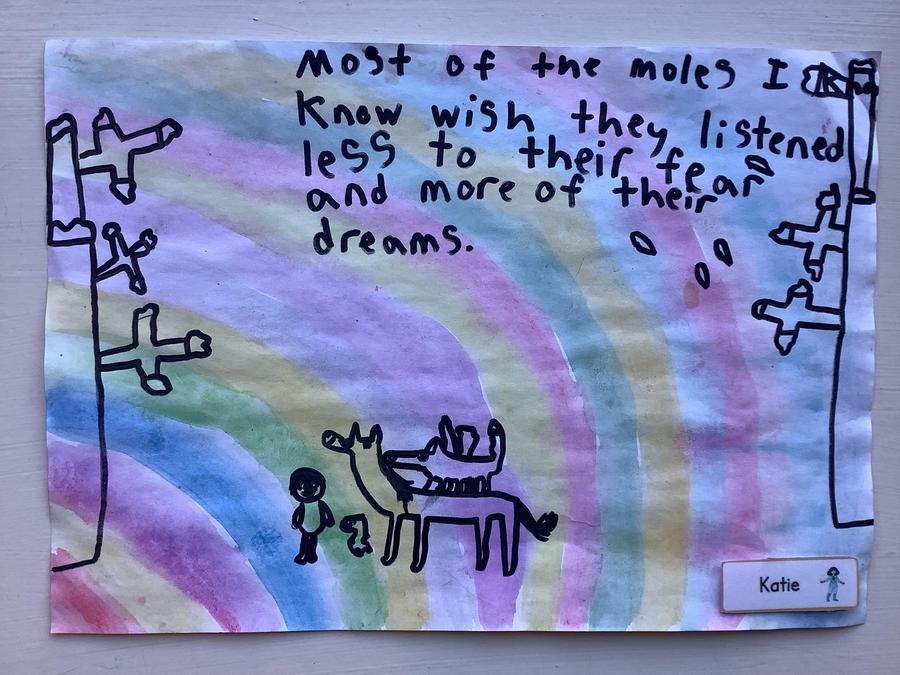 Most of the moles I
Know wish they listened
less to their fear
and more of their
dreams.
Katie